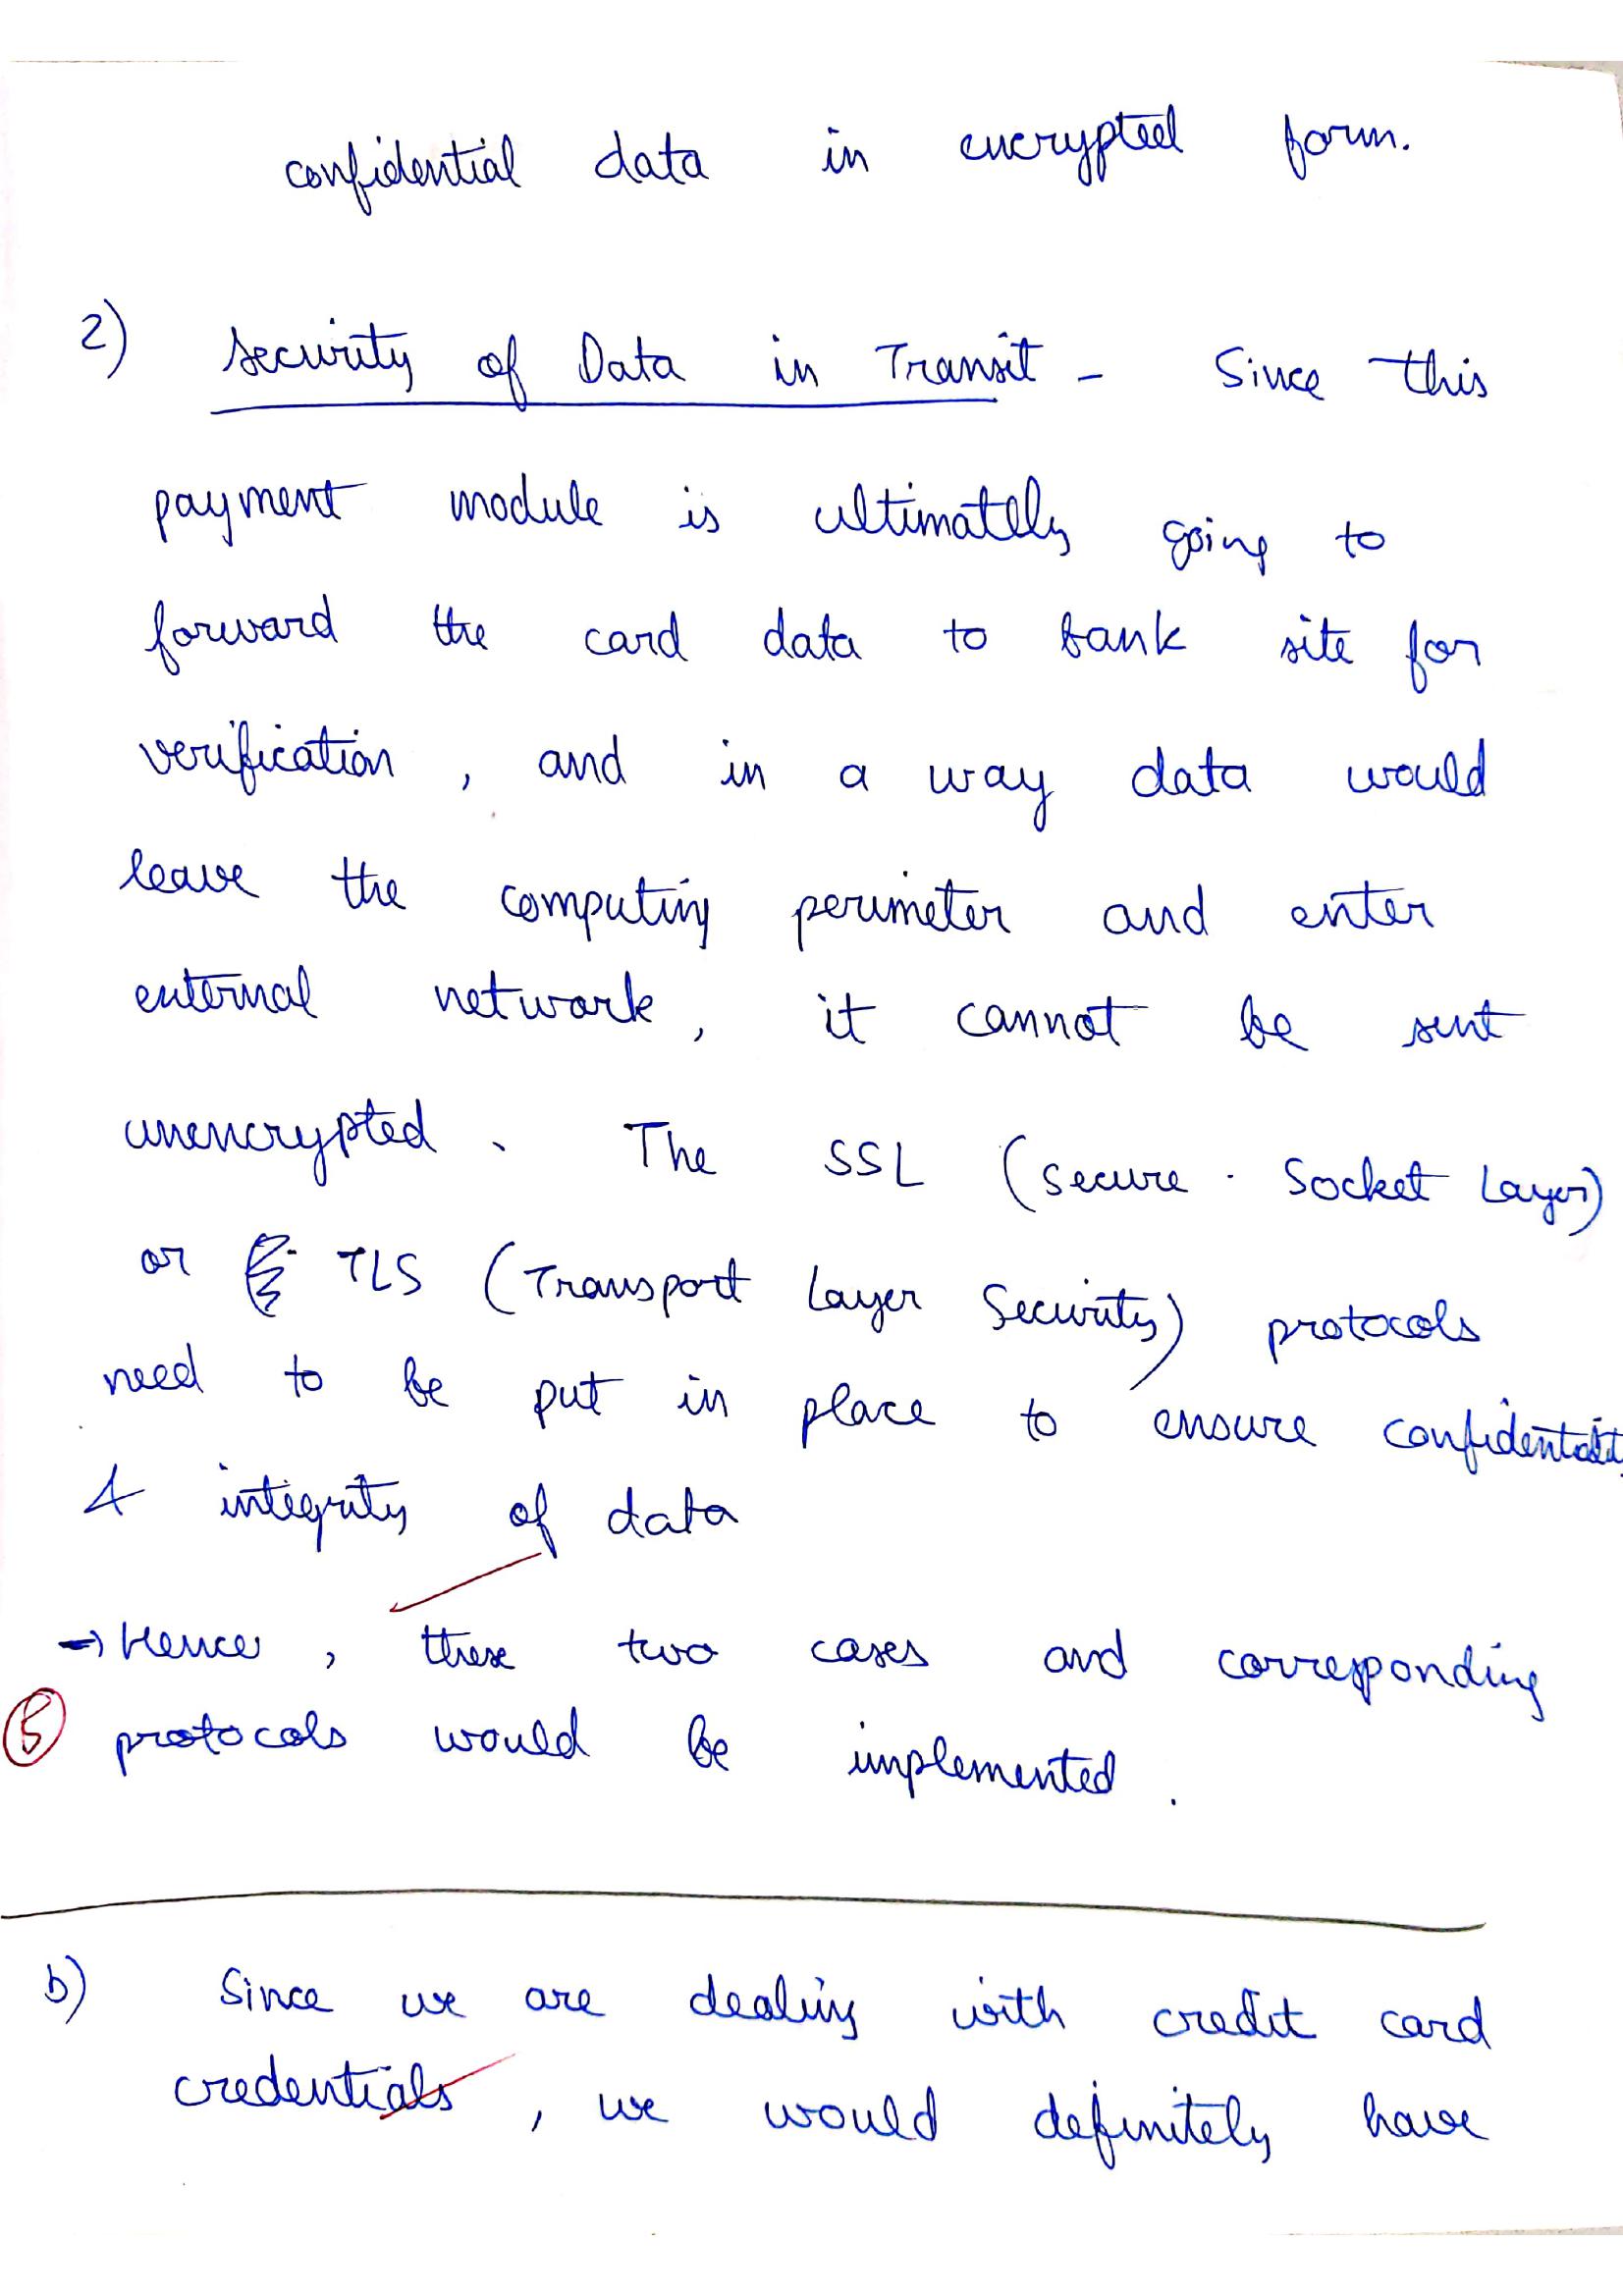 confidential data in encrypted form.
2) Security of Data in Transit - Since this
payment module is ultimately going to
forward the card data to bank site for
verification, and in a way data would
leave the computing perimeter and enter
external network, it cannot be sent
unencrypted. The SSL (Secure Socket Layer)
or TLS (Transport Layer Security) protocols
need to be put in place to ensure confidentiality
& integrity of data
→ Hence, these two cases and corresponding
5 protocols would be implemented.
b) Since we are dealing with credit card
credentials, we would definitely have